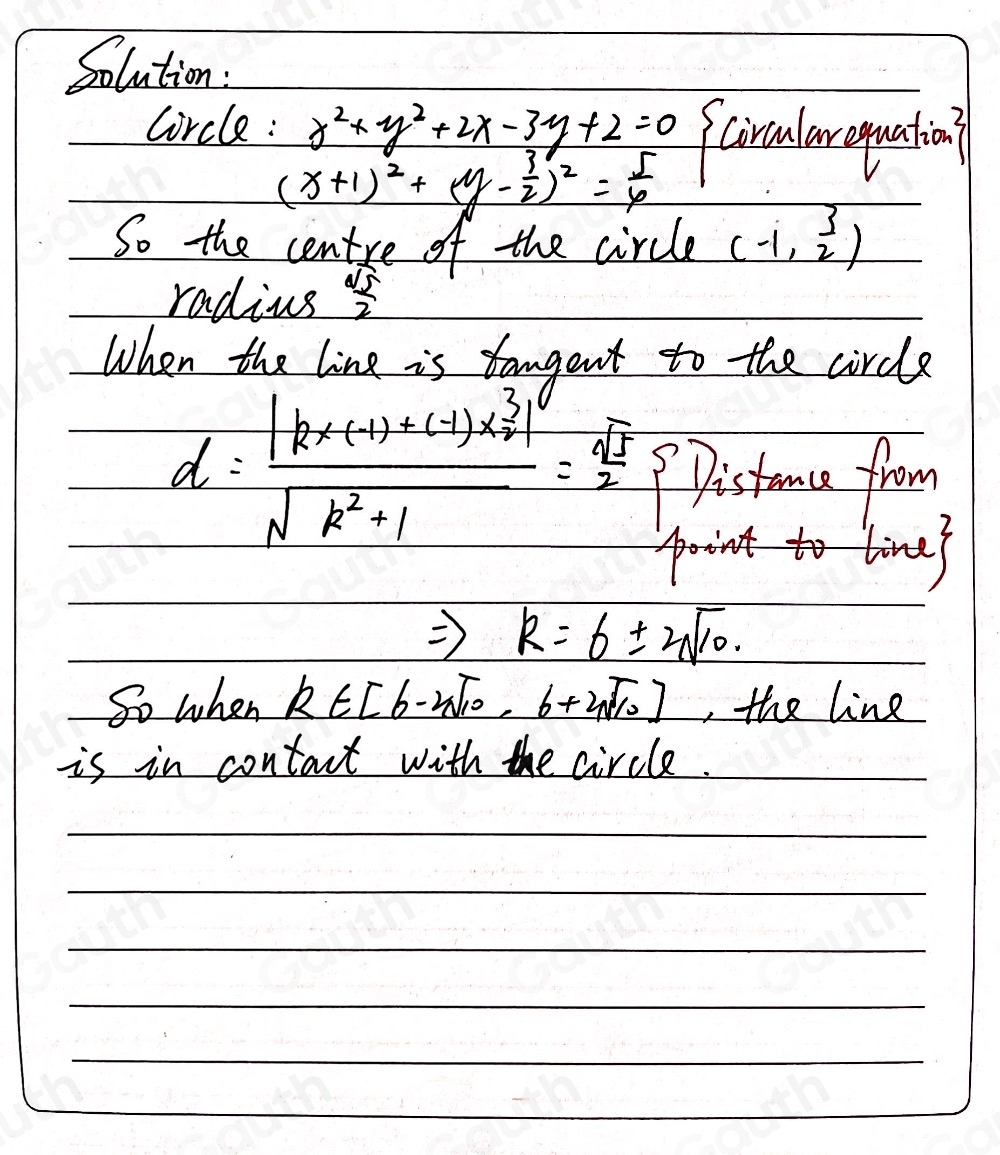 Solution:
Circle: x²+y²+2x-3y+2=0 {circular equation}
(x+1)²+(y-3/2)²=5/4
So the centre of the circle (-1, 3/2)
radius √5/2
When the line is tangent to the circle
d = |k×(-1)+(-1)×3/2| / √k²+1 = √5/2 {Distance from
point to line}
=> k = 6 ± 2√10.
So when k∈[6-2√10, 6+2√10], the line
is in contact with the circle.